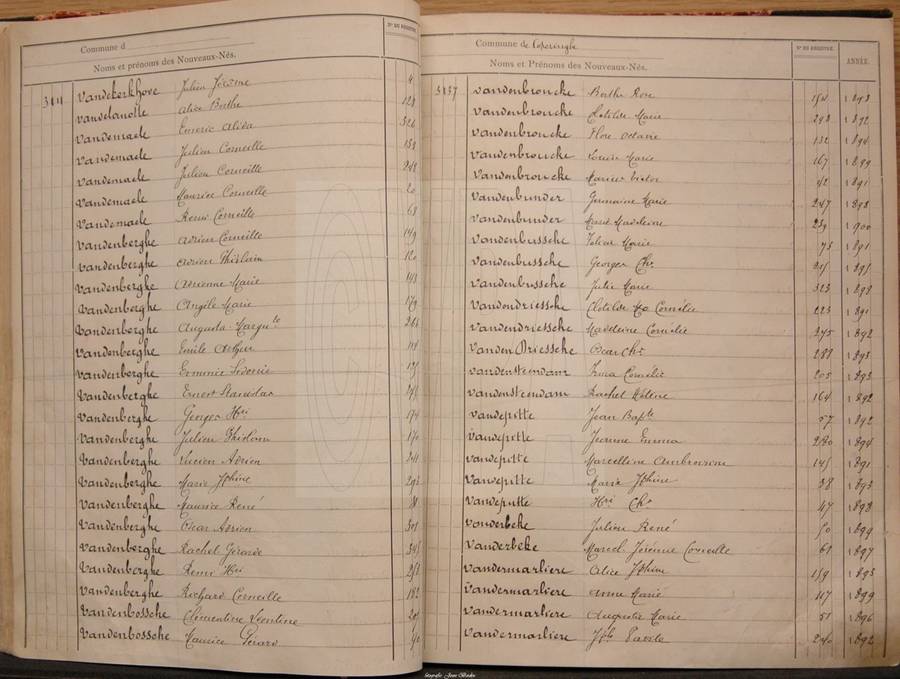 Commune d
N° DU REGISTRE.
Noms et prénoms des Nouveaux-Nés.
3111 Vandekerkhove Julien Jérôme 4
Vandelanotte Alice Berthe 128
Vandemaele Emeric Alida 326
Vandemaele Julien Corneille 153
Vandemaele Julien Corneille 242
Vandemaele Maurice Corneille 20
Vandemaele Remi Corneille 63
Vandenberghe Adrien Corneille 149
Vandenberghe Adrien Ghislain 120
Vandenberghe Adrienne Marie 143
Vandenberghe Angèle Marie 179
Vandenberghe Augusta Margute 264
Vandenberghe Emile Arthur 114
Vandenberghe Erminie Ledovie
Vandenberghe Ernest Stanislas
Vandenberghe Georges Hri 174
Vandenberghe Julien Ghislain 170
Vandenberghe Lucien Adrien 211
Vandenberghe Marie Jphine 293
Vandenberghe Maurice René
Vandenberghe Oscar Adrien 301
Vandenberghe Rachel Gérarde 345
Vandenberghe Remi Hri 258
Vandenberghe Richard Corneille 182
Vandenbossche Clémentine Léontine 201
Vandenbossche Maurice Gérard
Commune de Poperinghe
N° DU REGISTRE.
ANNÉE.
Noms et Prénoms des Nouveaux-Nés.
3137 Vandenbroucke Berthe Rose 154 1898
Vandenbroucke Clotilde Marie 298 1892
Vandenbroucke Flore Octavie 132 1894
Vandenbroucke Louise Marie 167 1899
Vandenbroucke Marie Victor 42 1891
Vandenbunder Germaine Marie 247 1898
Vandenbunder Marie Madeleine 239 1900
Vandenbussche Marie 75 1891
Vandenbussche Georges Chs 215 1895
Vandenbussche Julie Marie 323 1898
Vandendriessche Clotilde Mie Cornélie 223 1891
Vandendriessche Madeleine Cornélie 275 1892
Vanden Driessche Oscar Chs 288 1893
Vandenstendam Irma Cornélie 205 1893
Vandenstendam Rachel Hélène 164 1892
Vandepitte Jean Bapte 57 1892
Vandepitte Jeanne Emma 280 1894
Vandepitte Marcelline Ambroisine 145 1891
Vandepitte Marie Jphine 38 1893
Vandeputte Hri Chs 47 1898
Vanderbeke Julien René 50 1899
Vanderbeke Marcel Jérémie Corneille 61 1897
Vandermarliere Alice Jphine 159 1895
Vandermarliere Anna Marie 117 1899
Vandermarliere Augusta Marie 51 1896
Vandermarliere Jph 240 1892